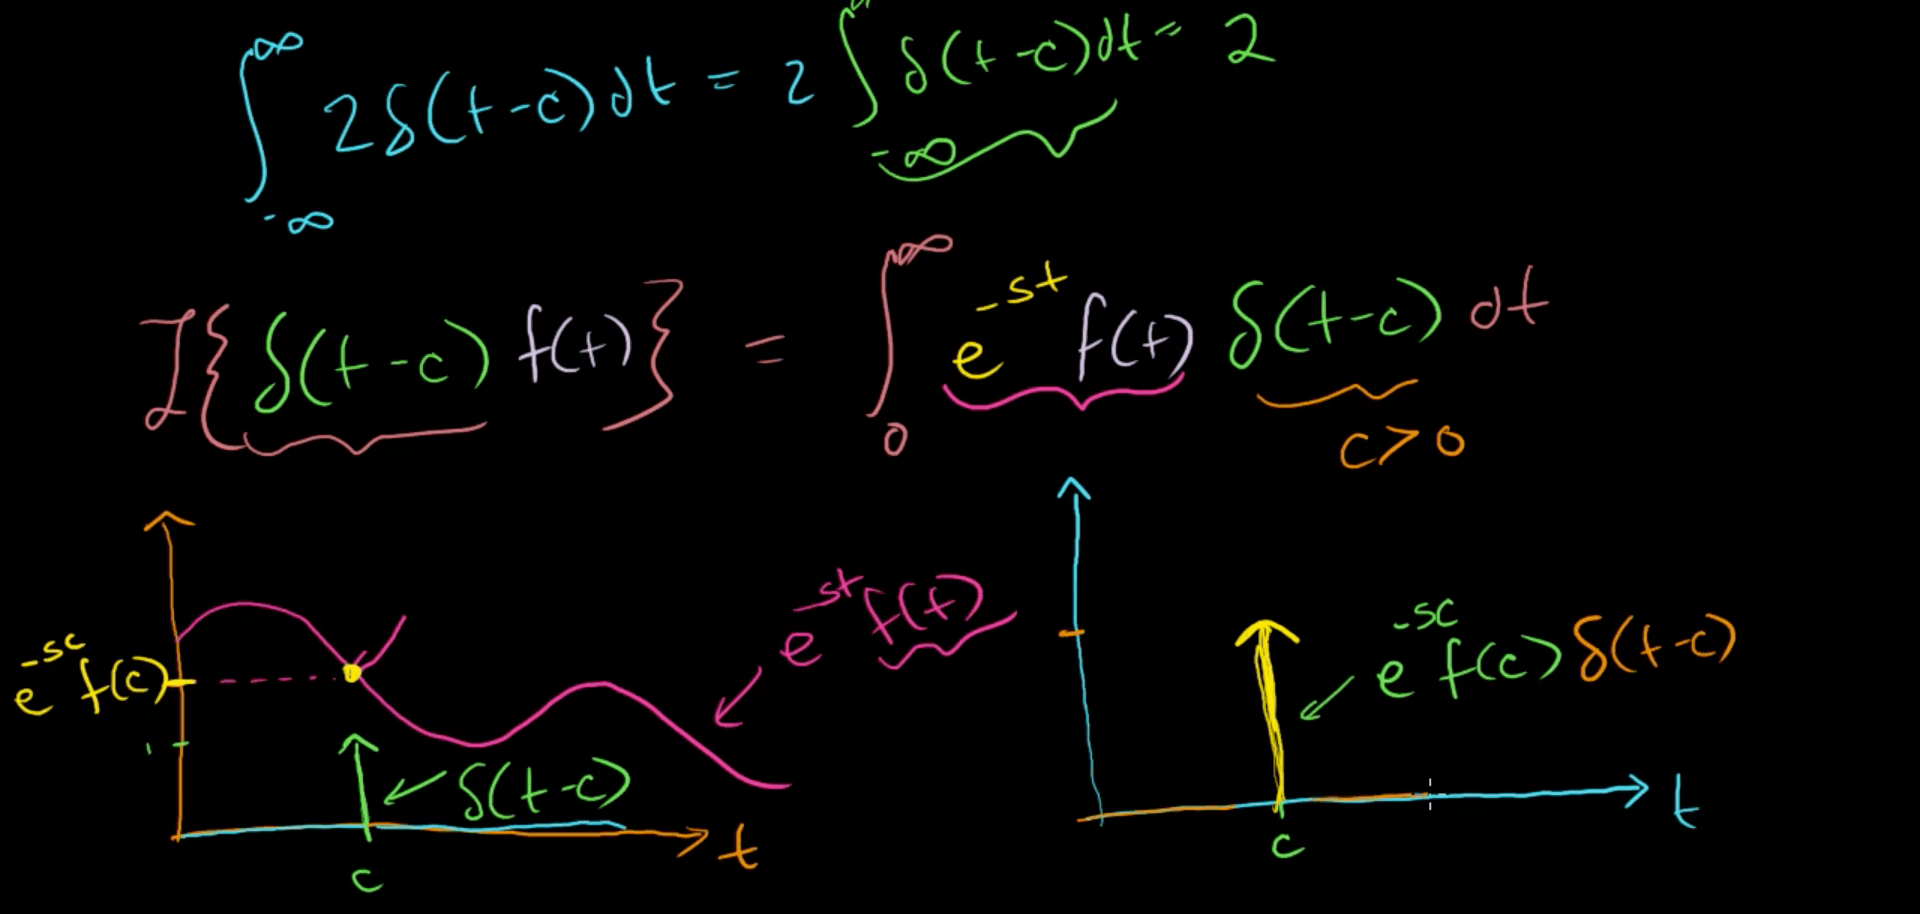 ∫_{-∞}^{∞} 2δ(t-c)dt = 2 ∫_{-∞}^{∞} δ(t-c)dt = 2
ℒ{δ(t-c) f(t)} = ∫_0^∞ e^{-st} f(t) δ(t-c) dt
c>0
e^{-st} f(t)
e^{-sc} f(c)
1
δ(t-c)
t
c
e^{-sc} f(c) δ(t-c)
t
c